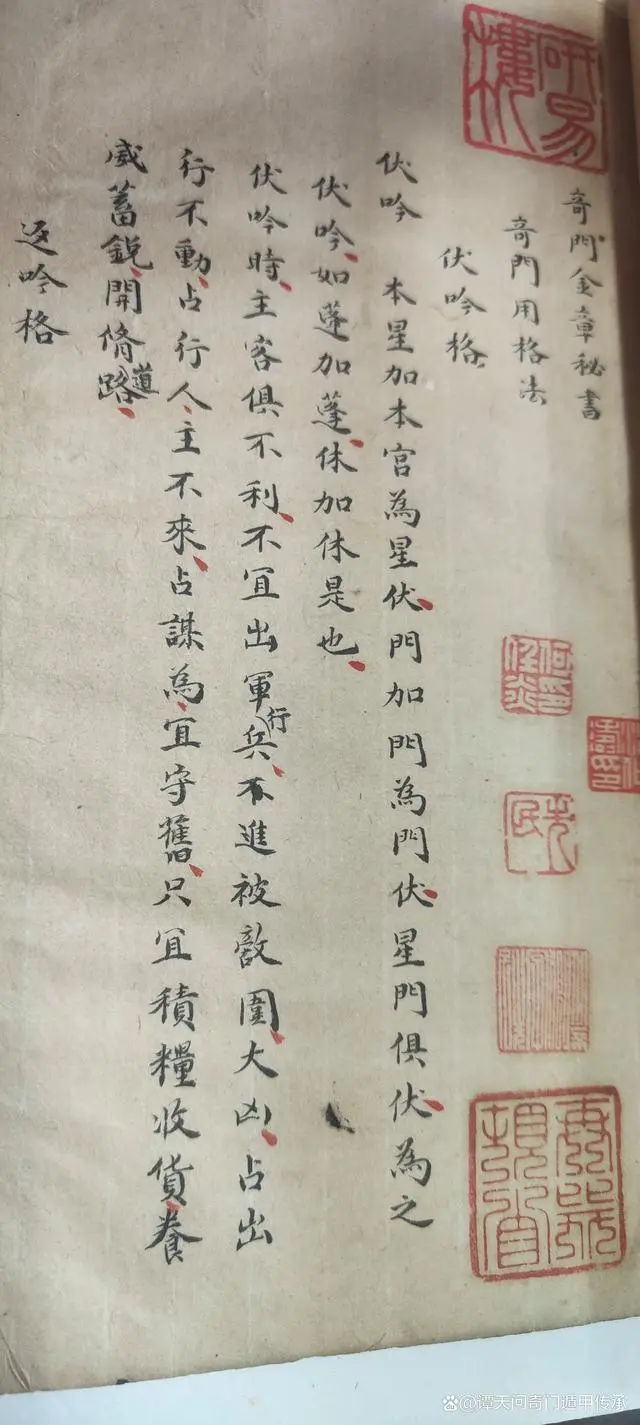 奇門金章秘書
奇門用格法
伏吟格
伏吟　本星加本宮為星伏門加門為門伏星門俱伏為之
伏吟、如蓬加蓬、休加休是也、
伏吟時、主客俱不利、不宜出軍行兵、不進被敵圍、大凶、占出
行不動、占行人、主不來、占謀為、宜守舊、只宜積糧收貨養
威蓄銳、開脩道路、
返吟格
研易樓
谭天问奇门遁甲传承